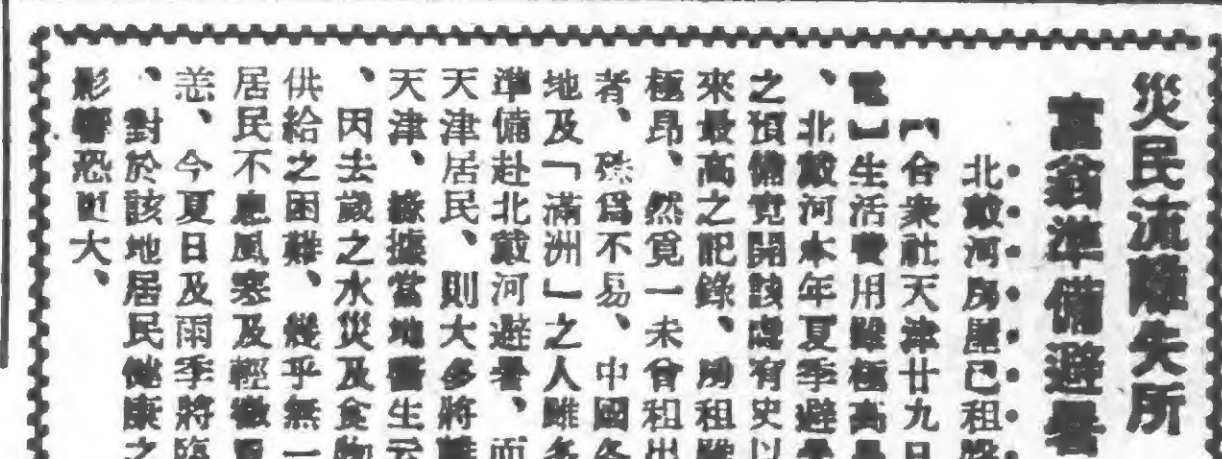 災民流離失所
富翁準備避暑
北戴河房屋已租
【合衆社天津廿九日
電】生活費用雖極高昂
、北戴河本年夏季避暑
之預備竟開該處有史以
來最高之記錄、房租雖
極昂、然覓一未曾租出
者、殊爲不易、中國各
地及「滿洲」之人雖多
準備赴北戴河避暑、而
天津居民、則大多將離
天津、緣據當地醫生云
、因去歲之水災及食物
供給之困難、幾乎無一
居民不患風寒及輕微
恙、今夏日及雨季將臨
、對於該地居民健康之
影響恐更大、